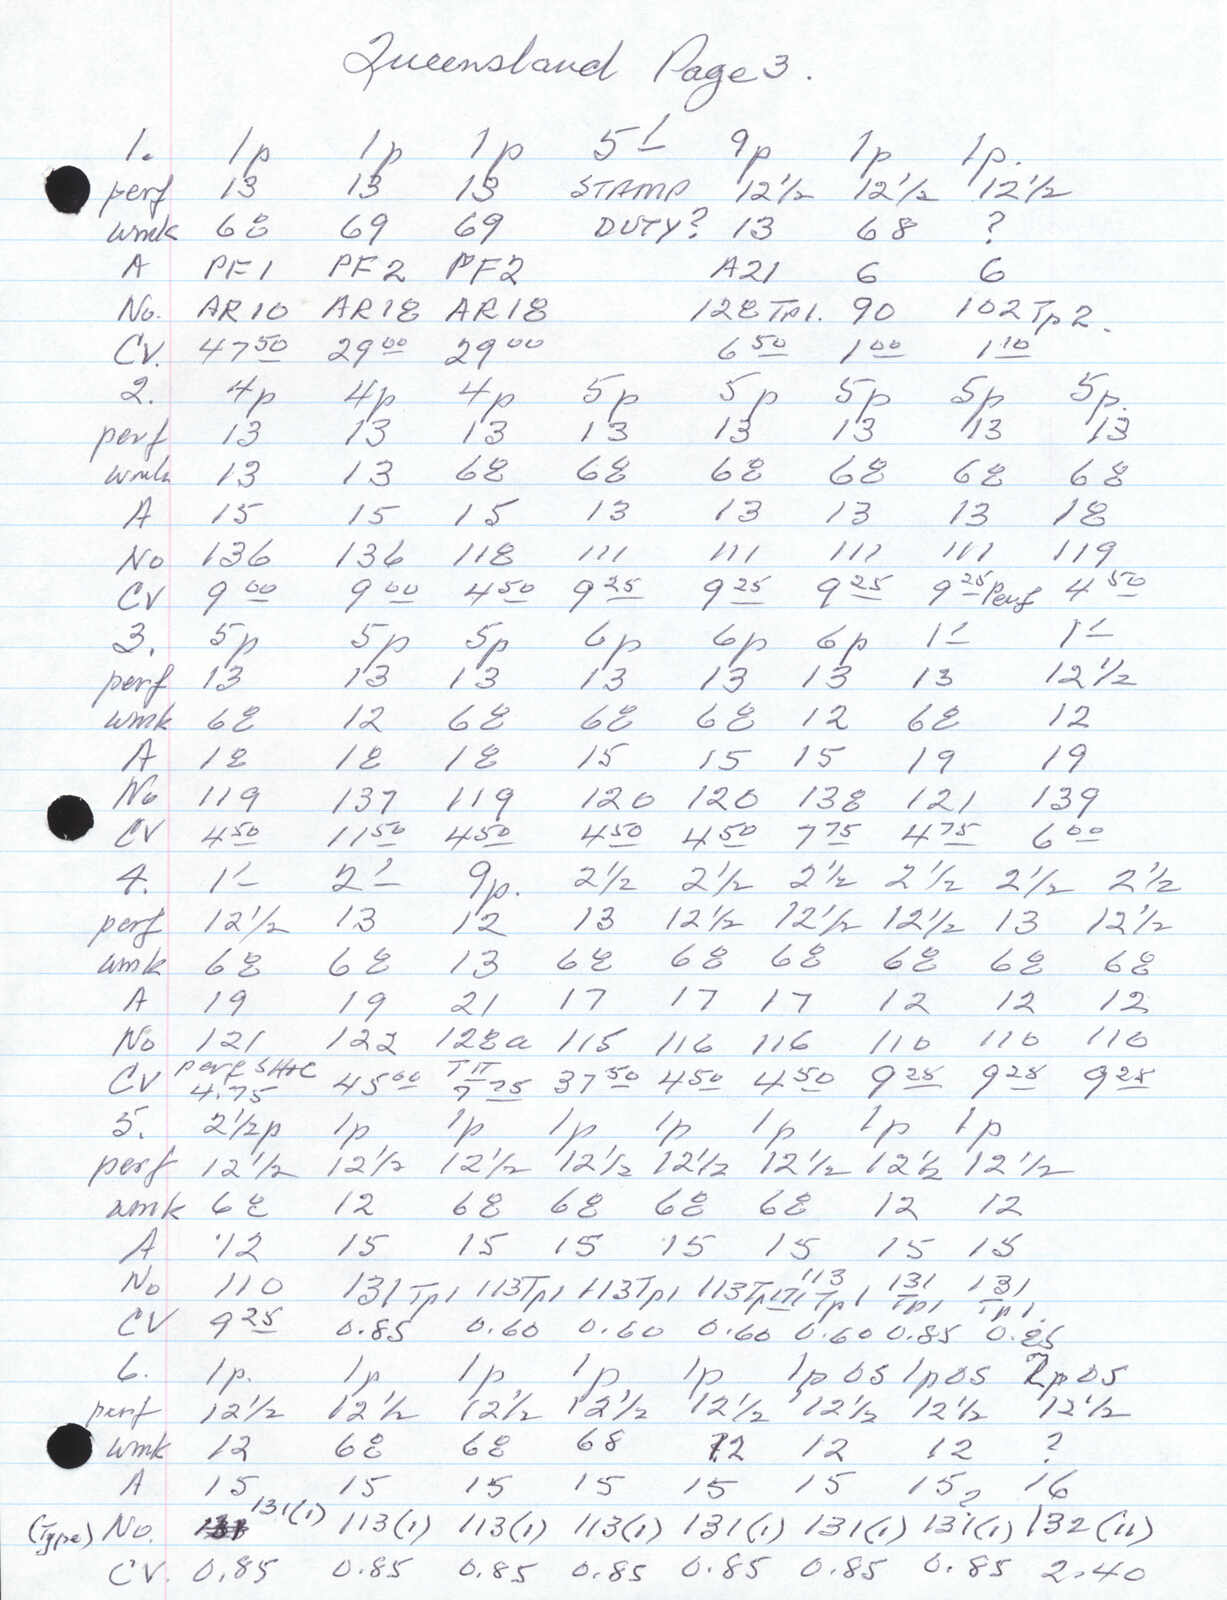 Queensland Page 3.
1. 1p 1p 1p 5/- 9p 1p 1p.
perf 13 13 13 STAMP 12½ 12½ 12½
wmk 68 69 69 DUTY? 13 68 ?
A PF1 PF2 PF2 A21 6 6
No. AR10 AR18 AR18 128 Tp1. 90 102 Tp2.
CV. 47 50 29 00 29 00 6 50 1 00 1 10
2. 4p 4p 4p 5p 5p 5p 5p 5p.
perf 13 13 13 13 13 13 13 13
wmk 13 13 68 68 68 68 68 68
A 15 15 15 13 13 13 13 18
No 136 136 118 111 111 111 111 119
CV 9 00 9 00 4 50 9 25 9 25 9 25 9 25 Perf 4 50
3. 5p 5p 5p 6p 6p 6p 1/- 1/-
perf 13 13 13 13 13 13 13 12½
wmk 68 12 68 68 68 12 68 12
A 18 18 18 15 15 15 19 19
No 119 137 119 120 120 138 121 139
CV 4 50 11 50 4 50 4 50 4 50 7 75 4 75 6 00
4. 1/- 2/- 9p. 2½ 2½ 2½ 2½ 2½ 2½
perf 12½ 13 12 13 12½ 12½ 12½ 13 12½
wmk 68 68 13 68 68 68 68 68 68
A 19 19 21 17 17 17 12 12 12
No 121 122 128a 115 116 116 110 110 110
CV perf 4.75 45 00 TII 7 75 37 50 4 50 4 50 9 25 9 25 9 25
5. 2½p 1p 1p 1p 1p 1p 1p 1p
perf 12½ 12½ 12½ 12½ 12½ 12½ 12½ 12½
wmk 68 12 68 68 68 68 12 12
A 12 15 15 15 15 15 15 15
No 110 131 Tp1 113 Tp1 113 Tp1 113 Tp1 113 Tp1 131 Tp1 131 Tp1.
CV 9 25 0.85 0.60 0.60 0.60 0.60 0.85 0.85
6. 1p. 1p 1p 1p 1p 1p OS 1p OS 2p OS
perf 12½ 12½ 12½ 12½ 12½ 12½ 12½ 12½
wmk 12 68 68 68 12 12 12 ?
A 15 15 15 15 15 15 15? 16
(Type) No. 131(1) 113(1) 113(1) 113(1) 131(1) 131(1) 131(1) 132(11)
CV. 0.85 0.85 0.85 0.85 0.85 0.85 0.85 2.40